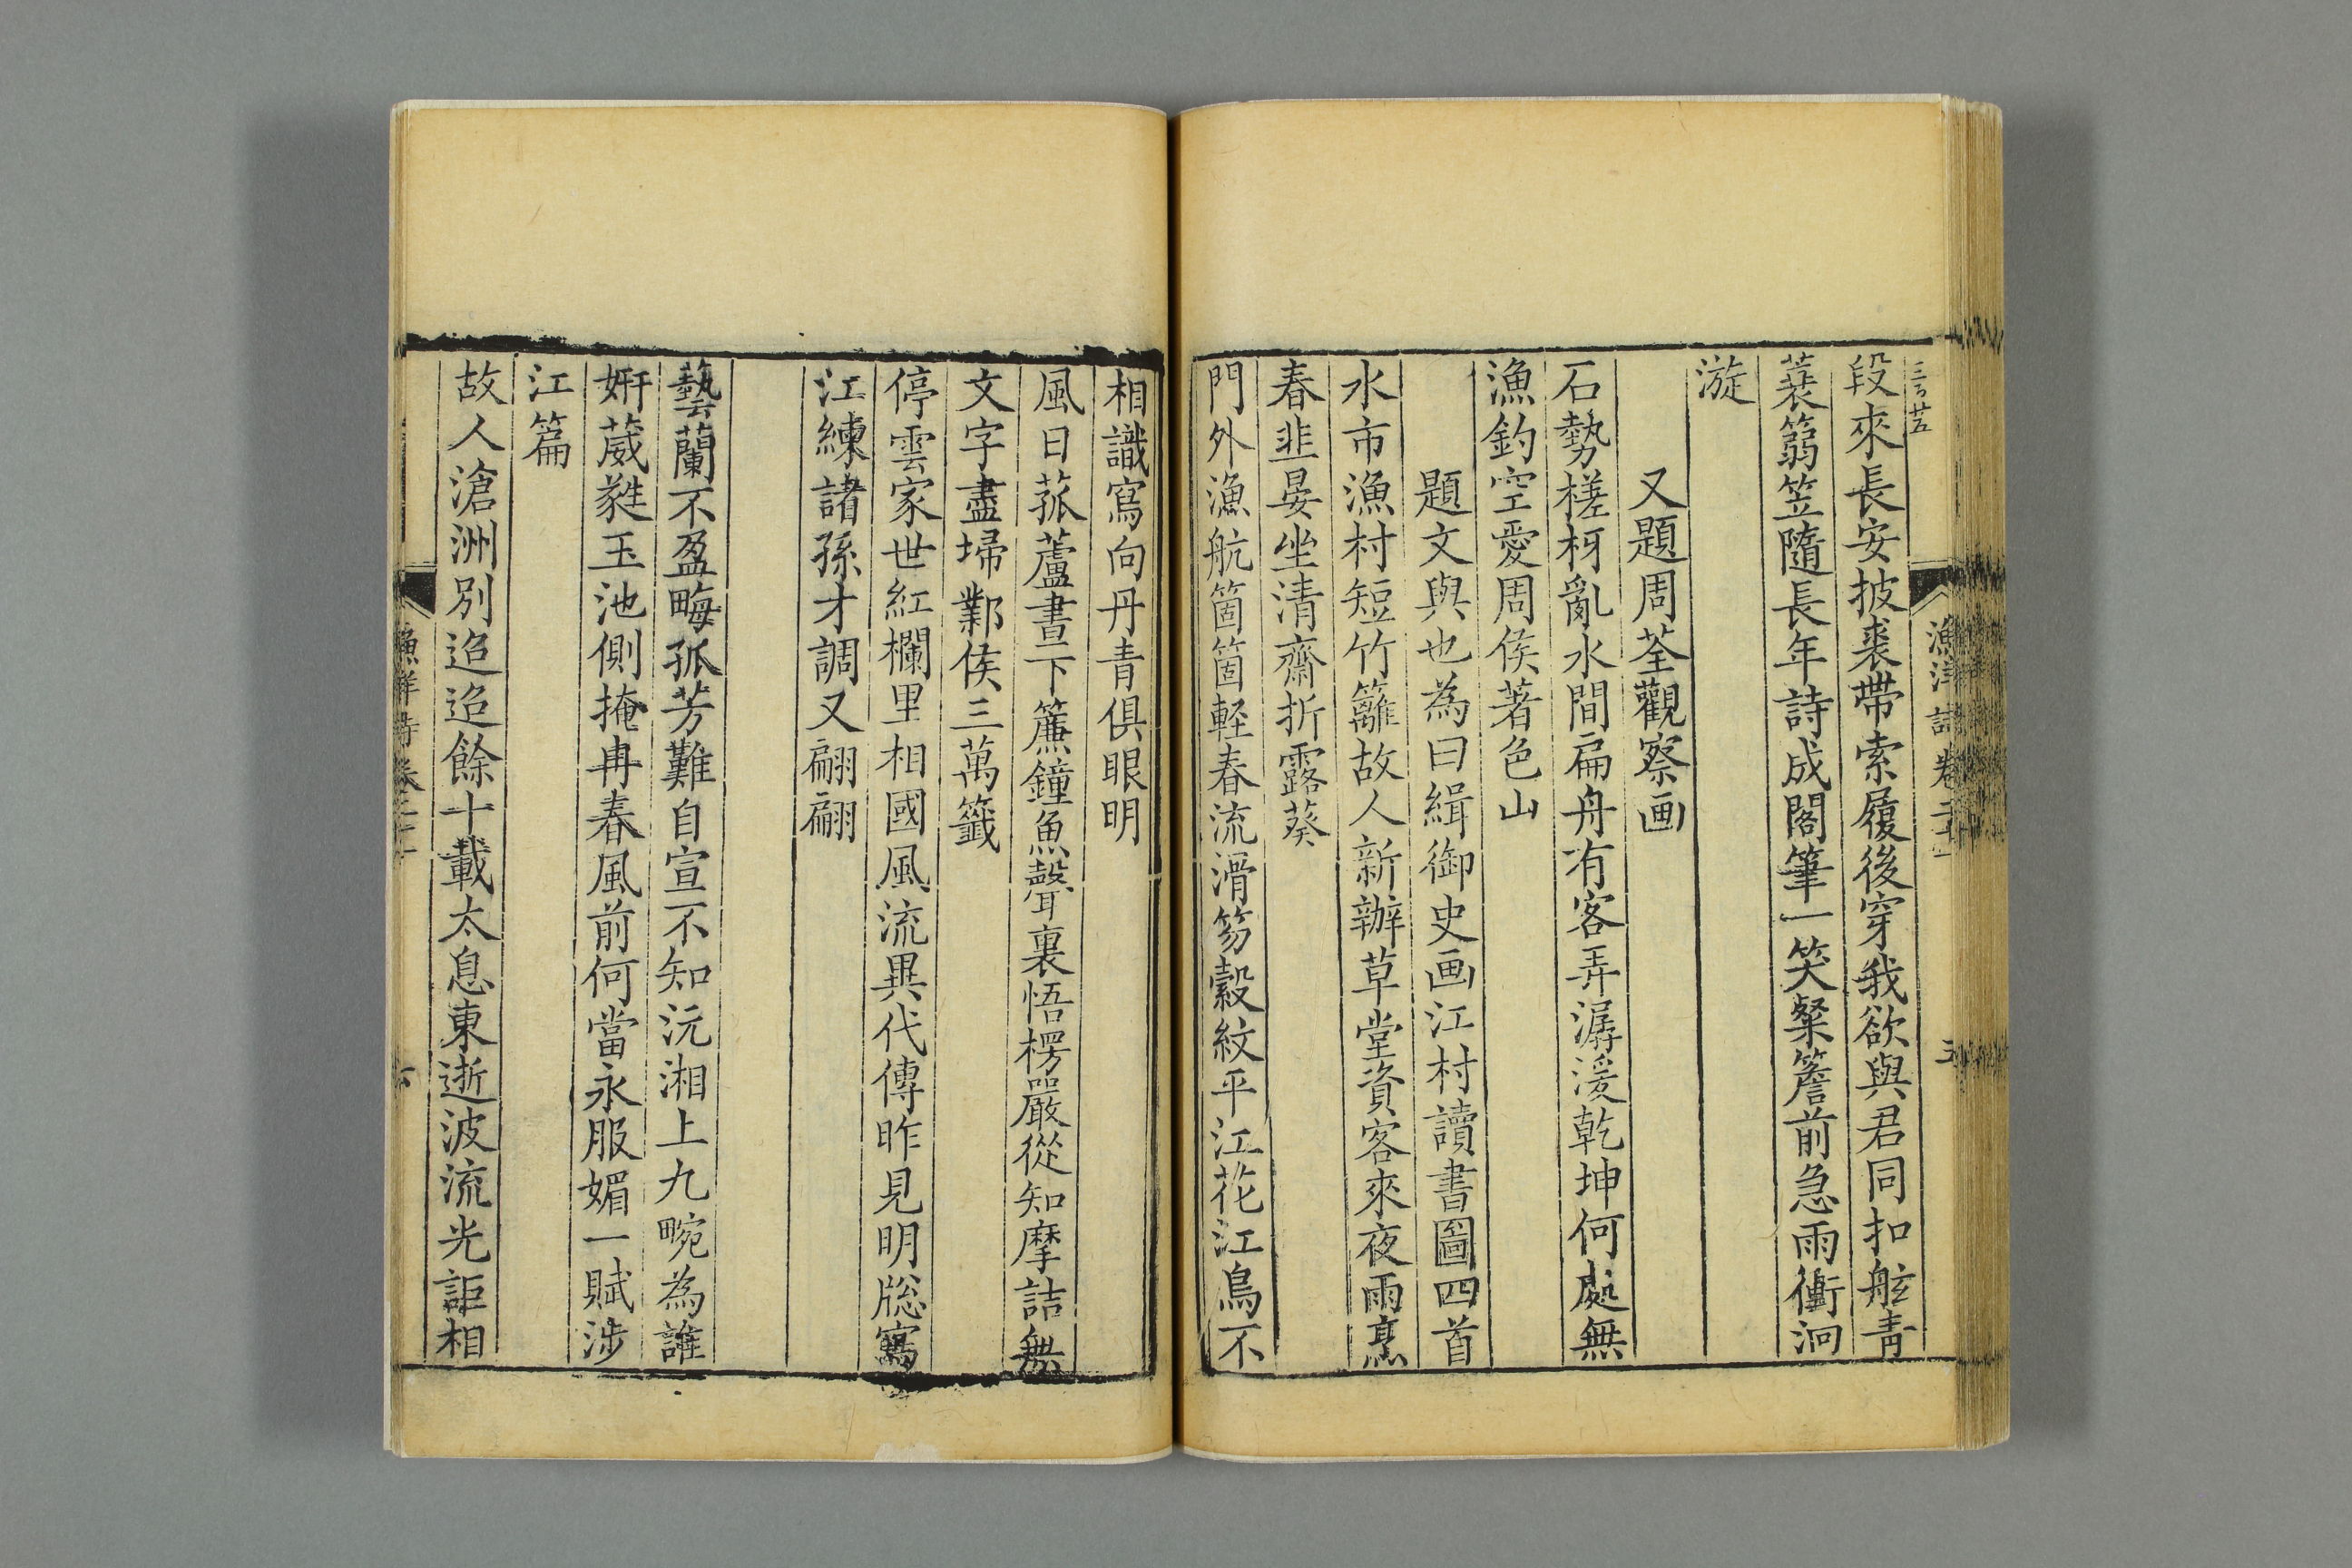 段來長安披裘帶索履後穿我欲與君同扣舷青
蓑篛笠隨長年詩成閣筆一笑粲簷前急雨衝洄
漩
又題周荃觀察画
石勢槎枒亂水間扁舟有客弄潺湲乾坤何處無
漁釣空愛周侯著色山
題文與也為曰緝御史画江村讀書圖四首
水市漁村短竹籬故人新辦草堂資客來夜雨烹
春韭晏坐清齋折露葵
門外漁航箇箇輕春流滑笏縠紋平江花江鳥不
漁洋詩卷二十
相識寫向丹青俱眼明
風日菰蘆晝下簾鐘魚聲裏悟楞嚴從知摩詰無
文字盡埽鄴侯三萬籤
停雲家世紅欄里相國風流異代傳昨見明牎寫
江練諸孫才調又翩翩
藝蘭不盈畮孤芳難自宣不知沅湘上九畹為誰
妍葳蕤玉池側掩冉春風前何當永服媚一賦涉
江篇
故人滄洲別迢迢餘十載太息東逝波流光詎相